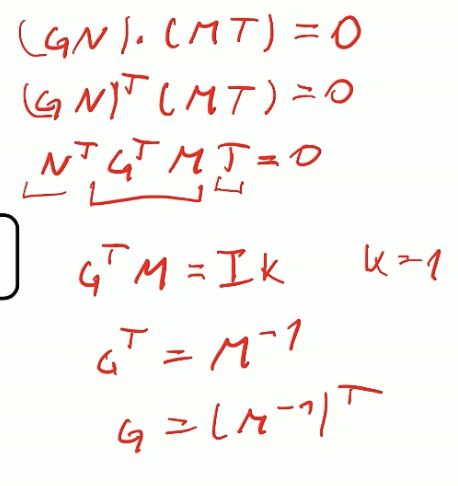 (GN).(MT)=0
(GN)ᵀ(MT)=0
NᵀGᵀMT=0
GᵀM=Ik k=1
Gᵀ=M⁻¹
G=(M⁻¹)ᵀ